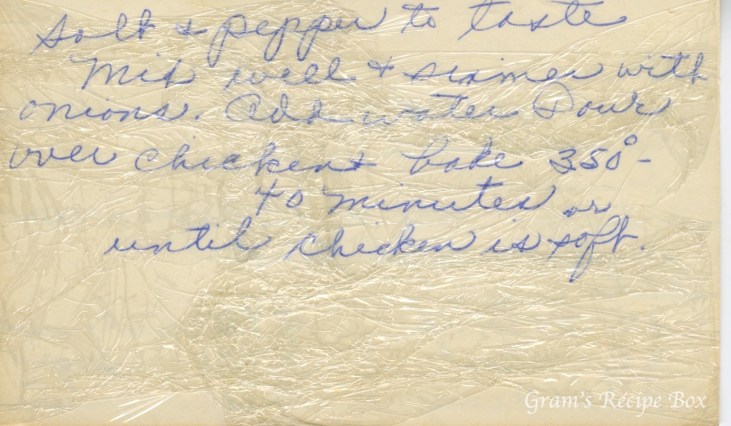 Salt & pepper to taste
Mix well & simmer with
onions. Add water Pour
over chicken & bake 350° -
40 minutes or
until chicken is soft.
Gram's Recipe Box